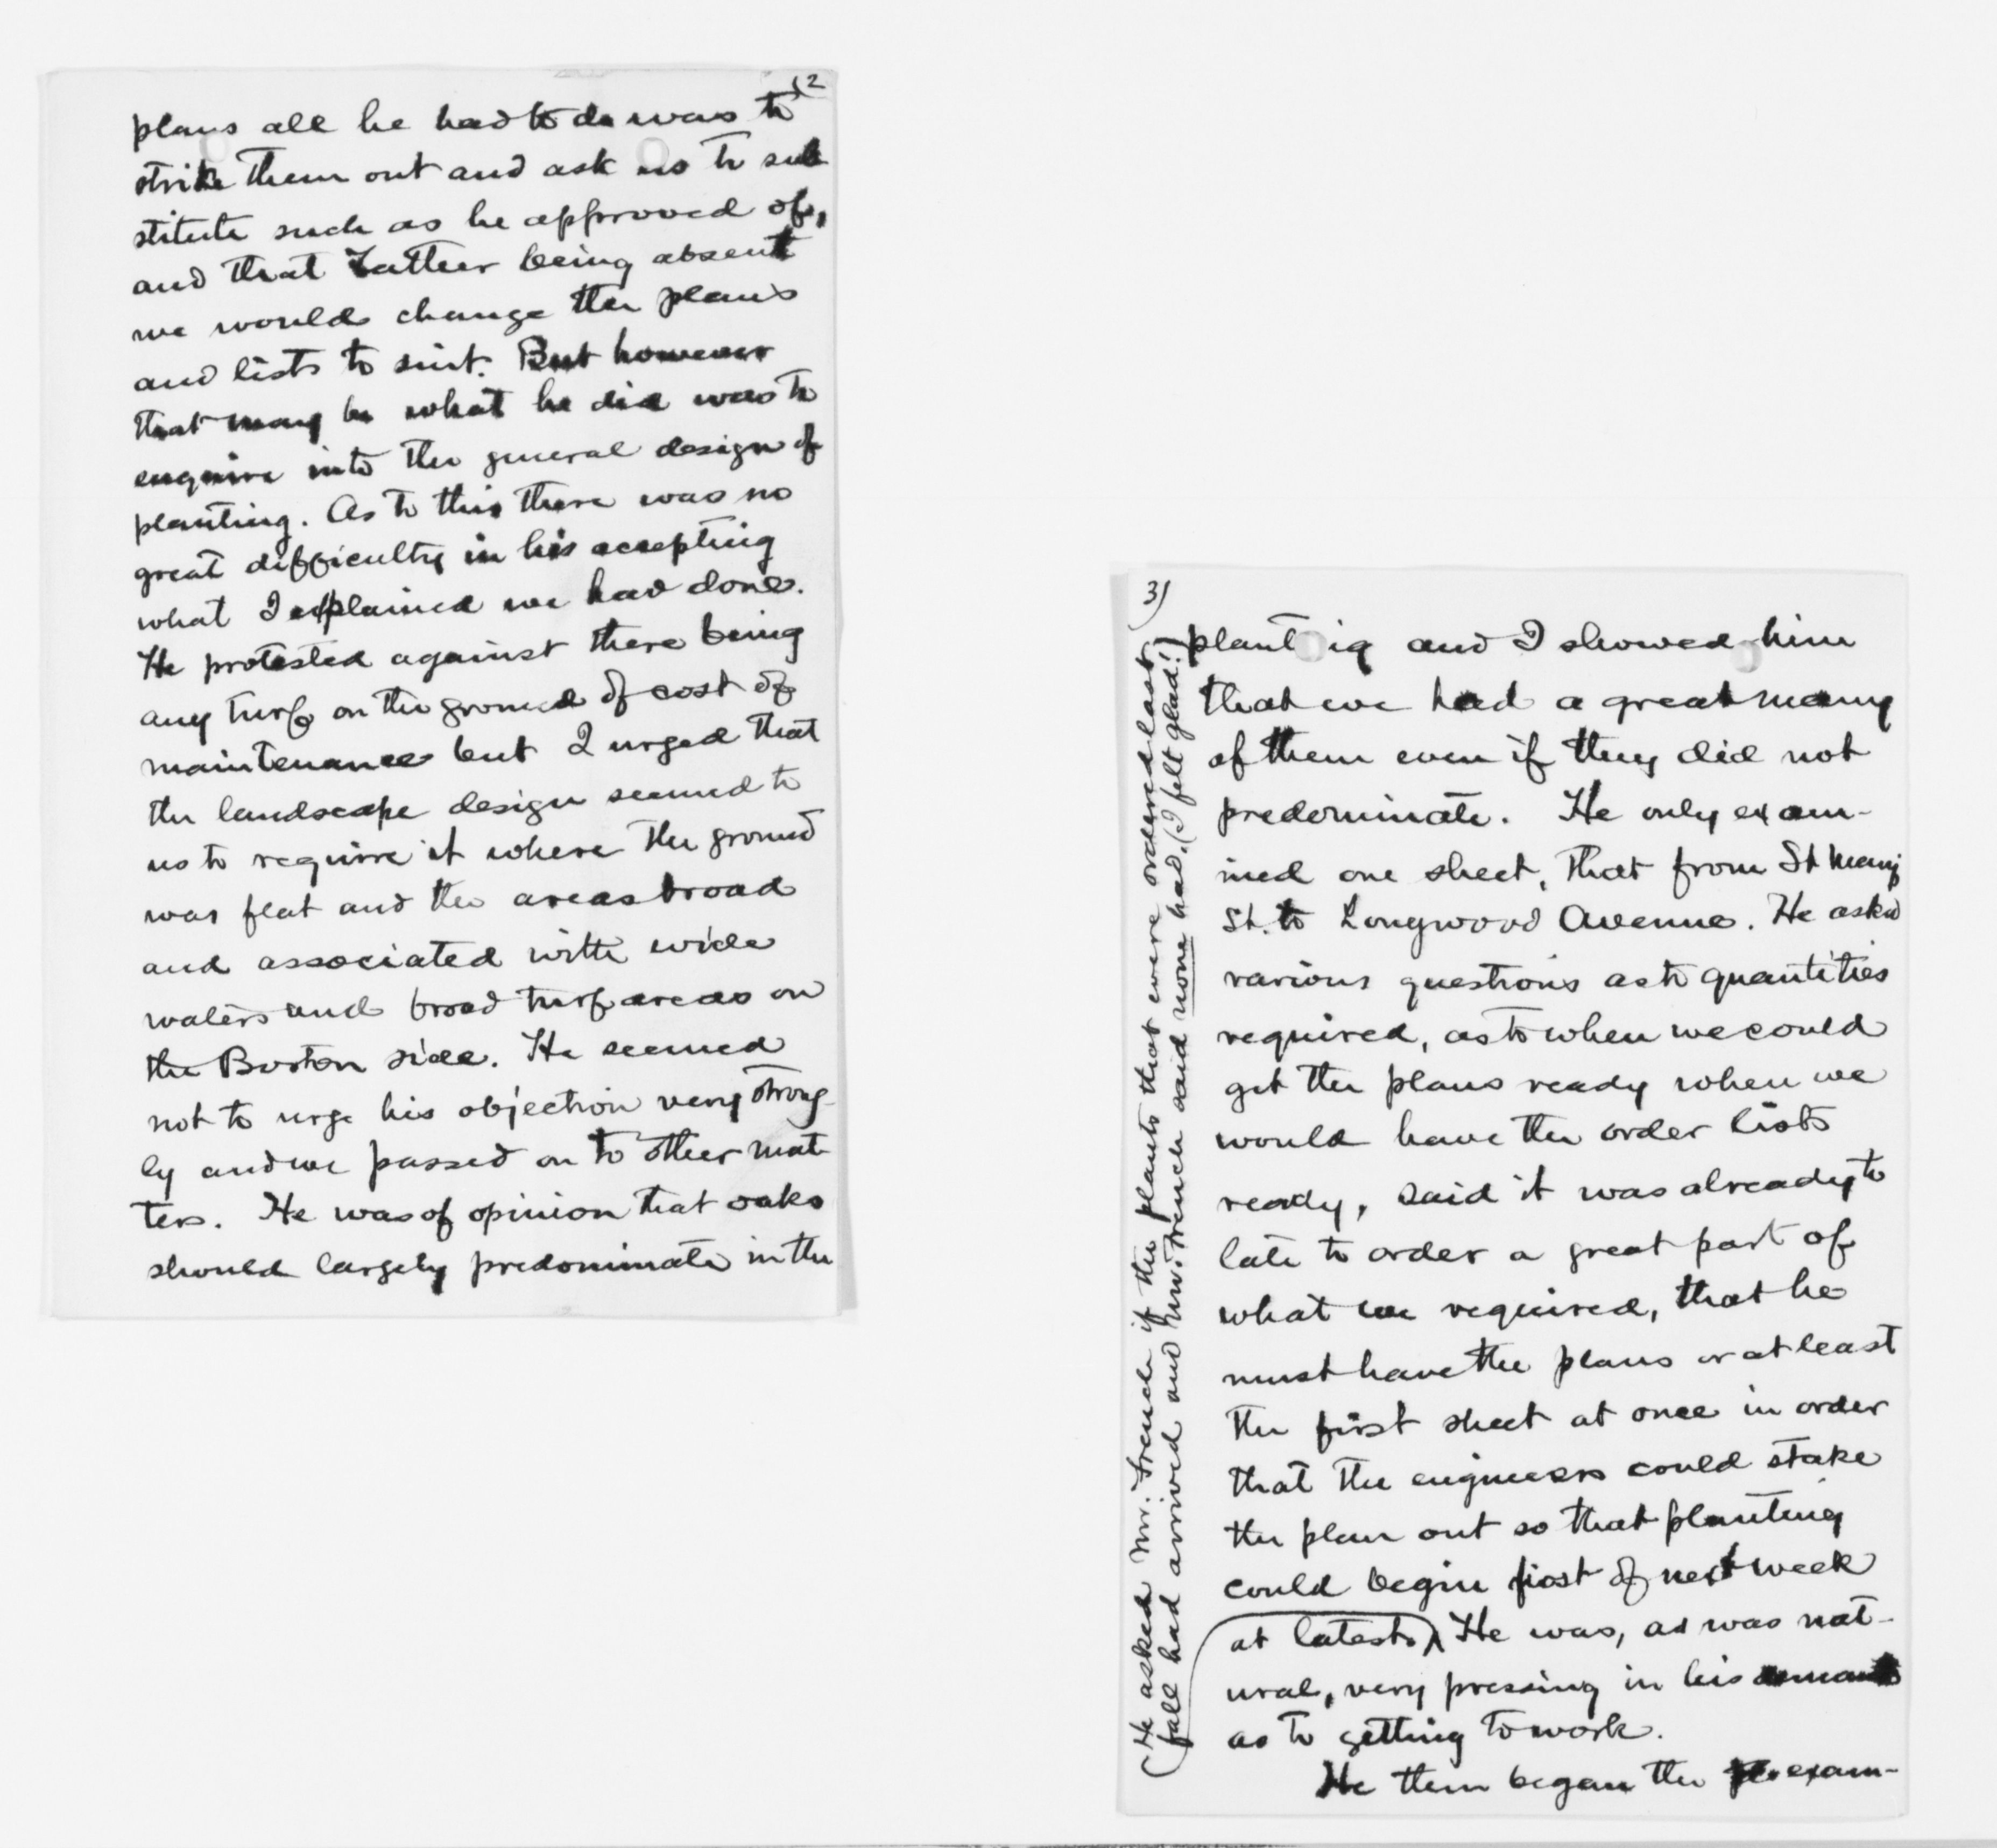 (2
plans all he had to do was to
strike them out and ask us to sub
stitute such as he approved of,
and that Father being absent
we would change the plans
and lists to suit. But however
that may be what he did was to
enquire into the general design of
planting. As to this there was no
great difficulty in his accepting
what I explained we had done.
He protested against there being
any turf on the ground of cost of
maintenance but I urged that
the landscape design seemed to
us to require it where the ground
was flat and the areas broad
and associated with wide
waters and broad turf areas on
the Boston side. He seemed
not to urge his objection very strong-
ly and we passed on to other mat-
ters. He was of opinion that oaks
should largely predominate in the
3)
planting and I showed him
that we had a great many
of them even if they did not
predominate. He only exam-
ined one sheet, that from St Mary
St. to Longwood Avenue. He asked
various questions as to quantities
required, as to when we could
get the plans ready when we
would have the order lists
ready, said it was already to
late to order a great part of
what we required, that he
must have the plans or at least
the first sheet at once in order
that the engineers could stake
the plan out so that planting
could begin first of next week
at latest. He was, as was nat-
ural, very pressing in his
as to getting to work.
He then began the exam-
(He asked Mr. French if the plants that were ordered last
fall had arrived and Mr. French said none had. (I felt glad!)